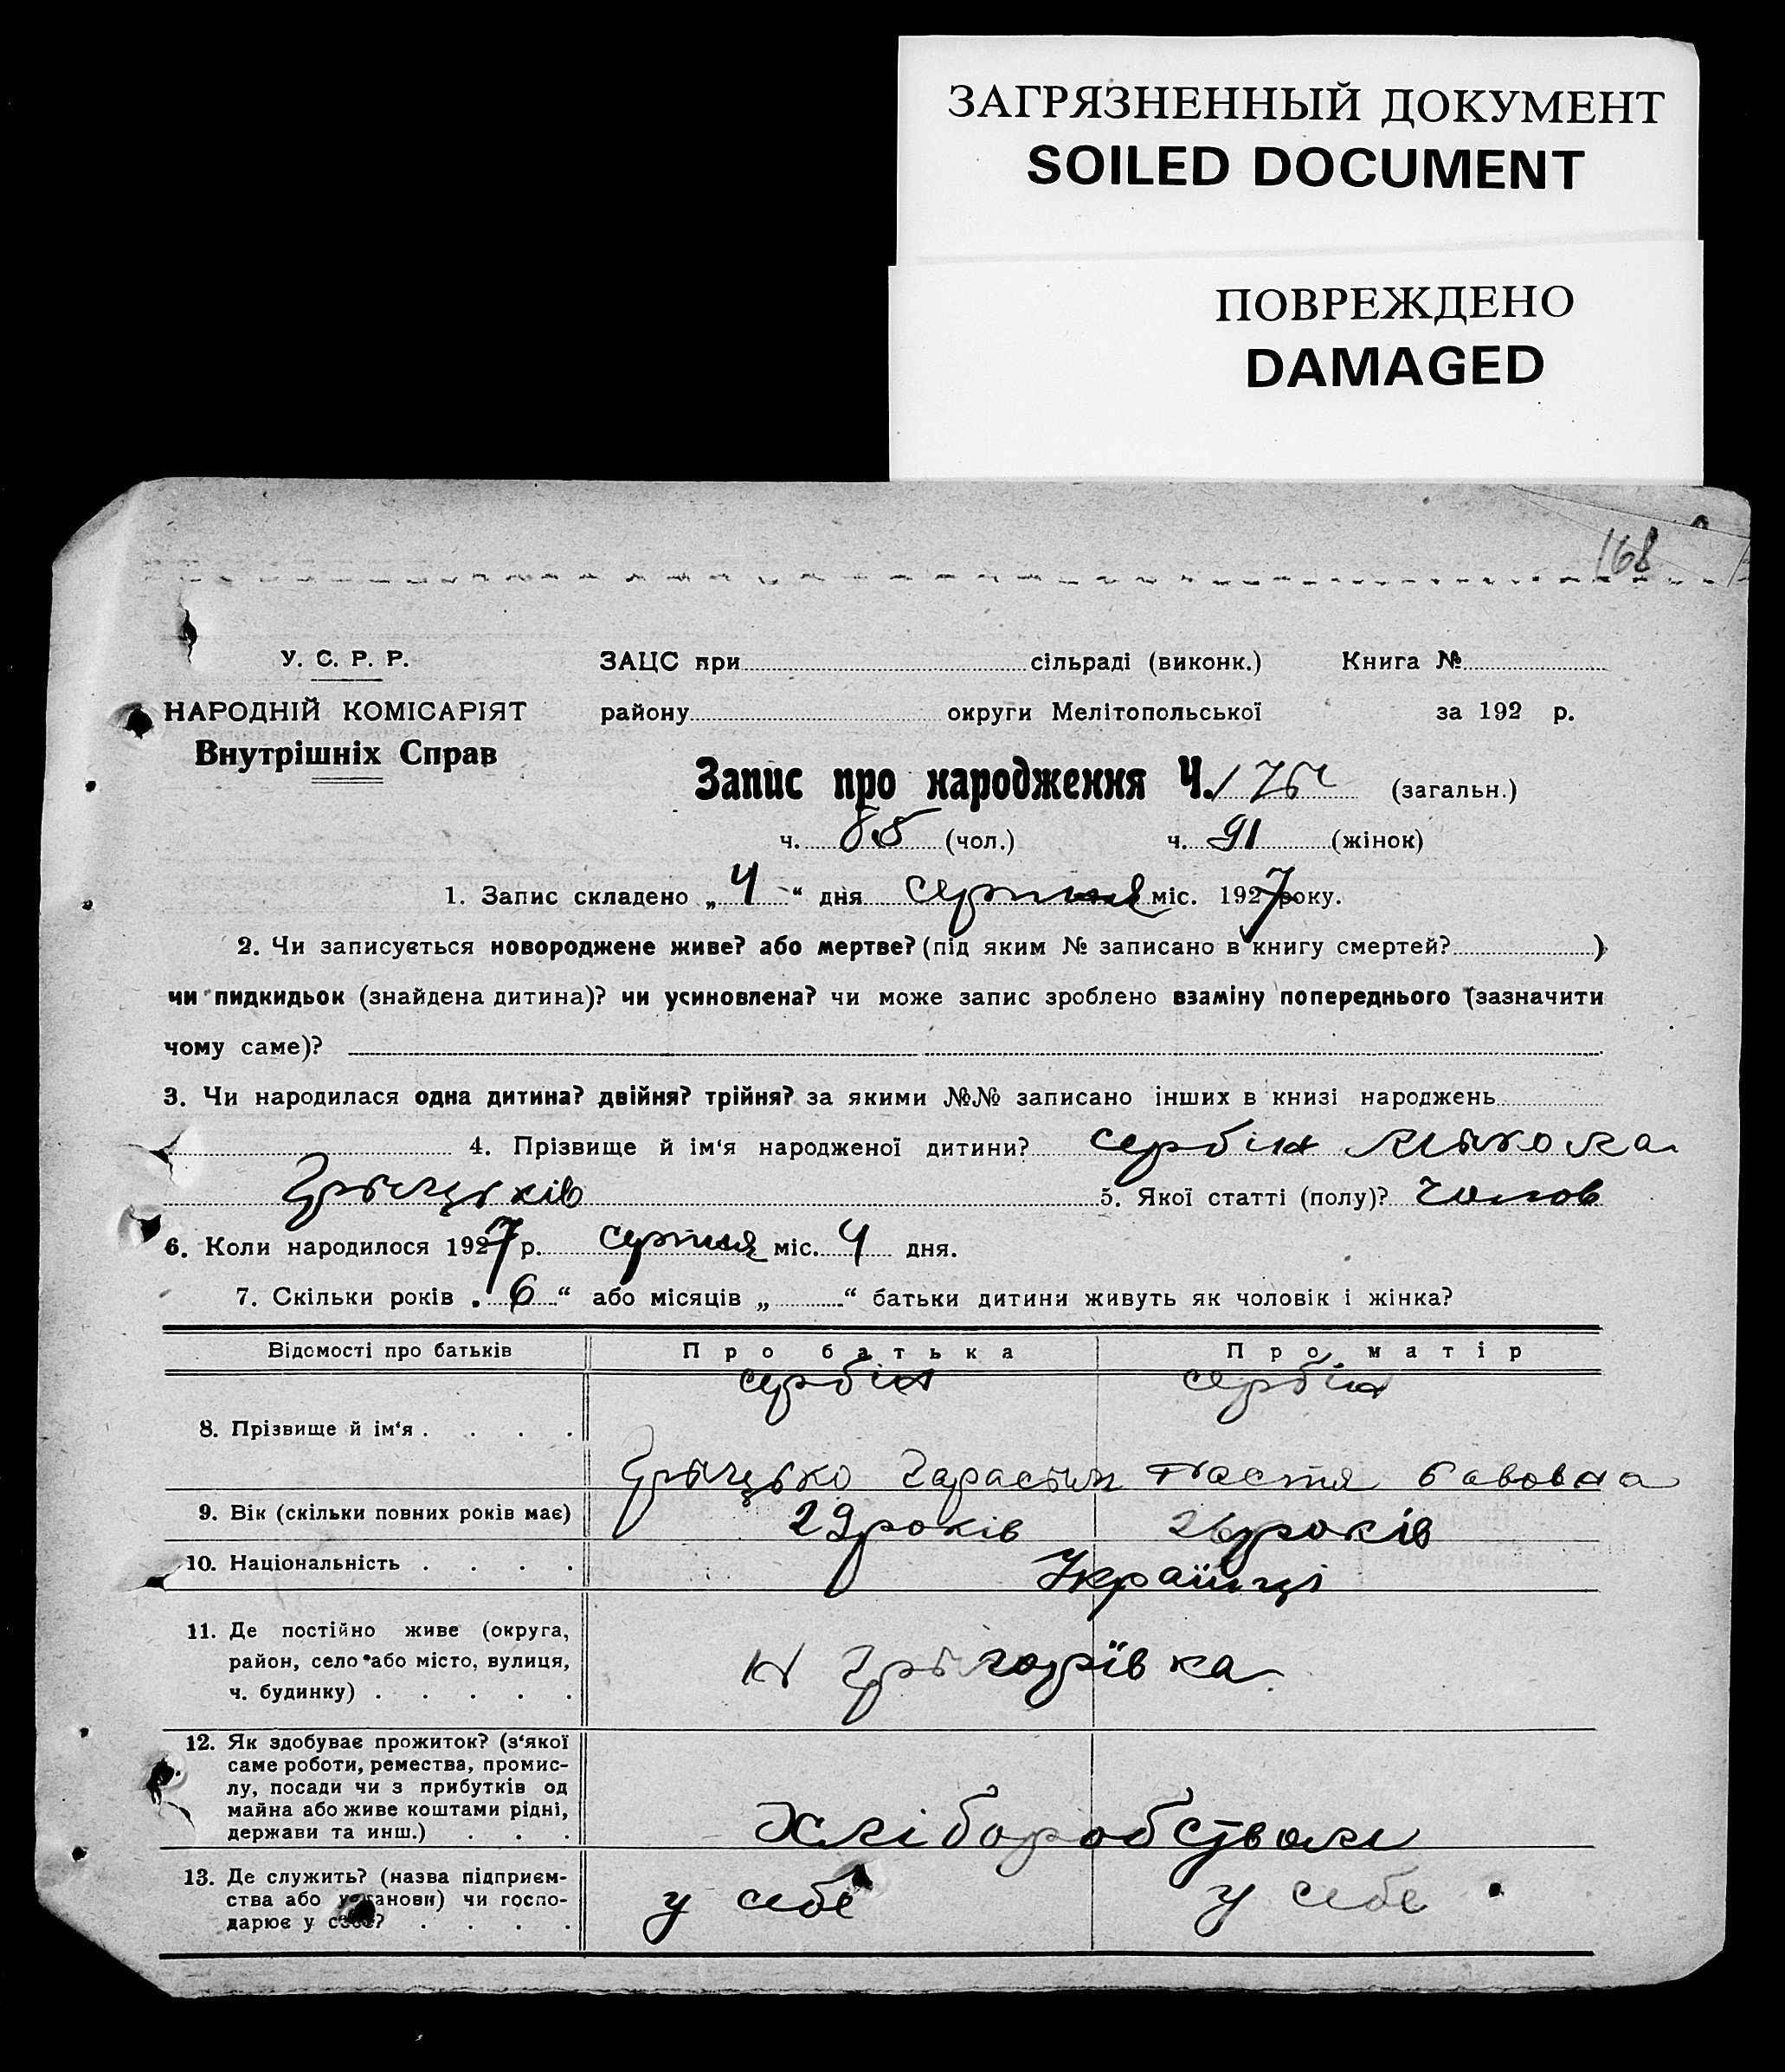 ЗАГРЯЗНЕННЫЙ ДОКУМЕНТ
SOILED DOCUMENT
ПОВРЕЖДЕНО
DAMAGED
168
У. С. Р. Р.
ЗАЦС при сільраді (виконк.) Книга №
НАРОДНІЙ КОМІСАРІЯТ
району округи Мелітопольської за 192 р.
Внутрішніх Справ
Запис про народження Ч. (загальн.)
ч. 85 (чол.) ч. 91 (жінок)
1. Запис складено „ 4 “ дня серпня міс. 1927 року.
2. Чи записується новороджене живе? або мертве? (під яким № записано в книгу смертей? )
чи пидкидьок (знайдена дитина)? чи усиновлена? чи може запис зроблено взаміну попереднього (зазначити
чому саме)?
3. Чи народилася одна дитина? двійня? трійня? за якими №№ записано інших в книзі народжень
4. Прізвище й ім‘я народженої дитини? сербін Микола
Грыцьків 5. Якої статті (полу)? чолов
6. Коли народилося 1927 р. серпня міс. 4 дня.
7. Скільки років „ 6 “ або місяців „ “ батьки дитини живуть як чоловік і жінка?
Відомості про батьків Про батька Про матір
сербін сербін
8. Прізвище й ім‘я . . . .
Грыцько Настя
9. Вік (скільки повних років має) 29 років 26 років
10. Національність . . . . Українці
11. Де постійно живе (округа,
район, село або місто, вулиця,
ч. будинку) . . . . .
Н Григорівка
12. Як здобуває прожиток? (з‘якої
саме роботи, ремества, промис-
лу, посади чи з прибутків од
майна або живе коштами рідні,
держави та инш.) . . .
Хліборобством
13. Де служить? (назва підприєм-
ства або установи) чи госпо-
дарює у себе? . . . .
у себе у себе